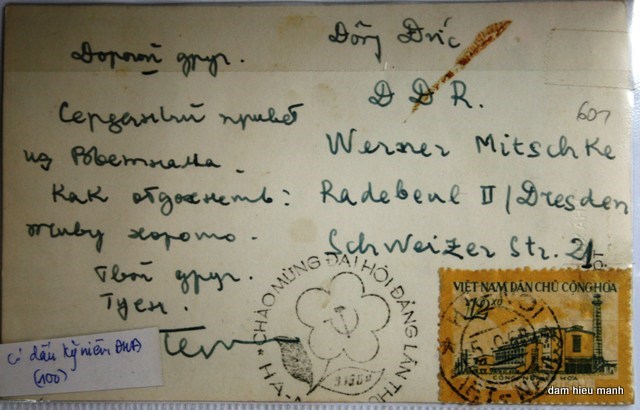 Дорогой друг.
Сердечный привет
из Вьетнама.
Как отдохнеть:
живу хорошо.
Твой друг.
Туен.
Đông Đức
D D R.
601
Werner Mitschke
Radebeul II / Dresden
Schweizer Str. 21
CHÀO MỪNG ĐẠI HỘI ĐẢNG LẦN THỨ
HÀ-
9.1960
VIỆT NAM DÂN CHỦ CỘNG HÒA
12 xu
VIET-NAM
Có dấu kỷ niệm ĐHĐ
(100)
dam hieu manh